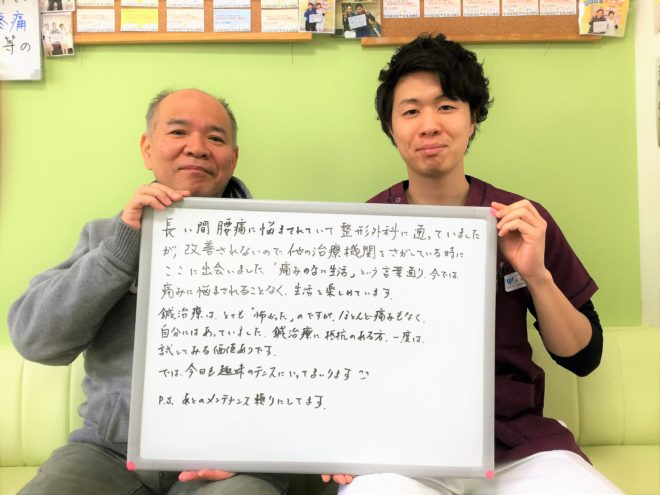 疼痛
等の
長い間 腰痛に悩まされていて 整形外科に通っていました
が、改善されないので他の治療機関をさがしている時に
ここに出会いました。"痛みのない生活"という言葉通り、今では
痛みに悩まされることなく、生活を楽しめています。
鍼治療は、とても"怖かった"のですが、ほとんど痛みもなく、
自分にはあっていました。鍼治療に抵抗のある方、一度は、
試してみる価値ありです。
では、今日も趣味のテニスにいってまいります
P.S. あとのメンテナンス頼りにしてます。